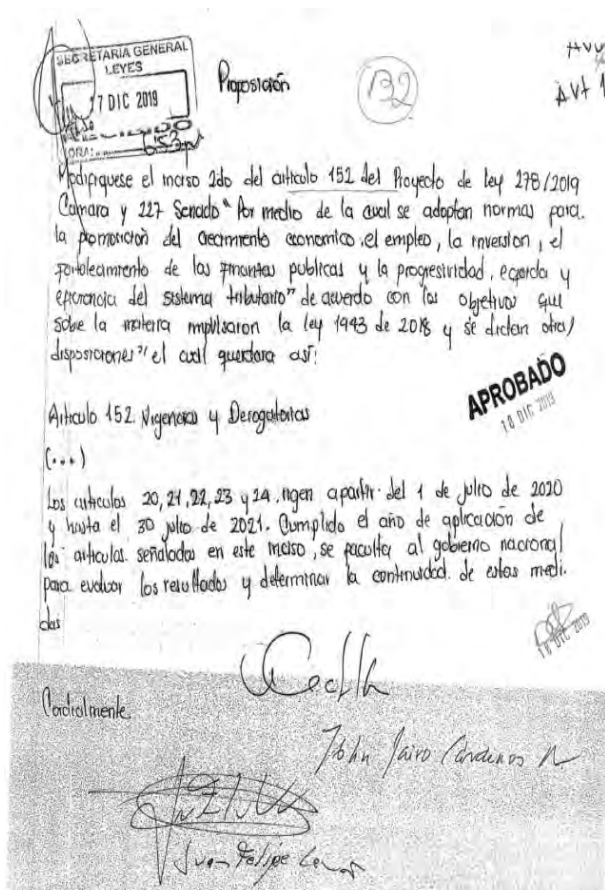 SECRETARIA GENERAL
LEYES
17 DIC 2019
HORA:
Proposición
132
Modifiquese el inciso 2do del articulo 152 del Proyecto de ley 278/2019
Camara y 227 Senado "Por medio de la cual se adoptan normas para
la promocion del crecimiento economico, el empleo, la inversion, el
fortalecimiento de las finanzas publicas y la progresividad, equidad y
eficiencia del sistema tributario" de acuerdo con los objetivos que
sobre la materia impulsaron la ley 1943 de 2018 y se dictan otras
disposiciones" el cual quedara así:
APROBADO
18 DIC 2019
Articulo 152. Vigencias y Derogatorias
(...)
Los articulos 20, 21, 22, 23 y 24. rigen apartir del 1 de julio de 2020
y hasta el 30 julio de 2021. Cumplido el año de aplicación de
los articulos señalados en este inciso, se faculta al gobierno nacional
para evaluar los resultados y determinar la continuidad de estas medi.
das
18 DIC 2019
Cordialmente
John Jairo Cardenas M.
Juan Felipe